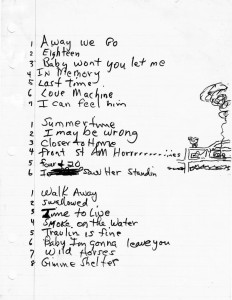 1 Away we Go
2 Eighteen
3 Baby won't you let me
4 In Memory
5 Last time
6 Love Machine
7 I can feel him
1 Summertime
2 I may be wrong
3 Closer to Home
4 Front St AM Horr........ines
5 four & 20
6 Saw Her Standin
1 Walk Away
2 swallowed
3 Time to Live
4 Smoke on the Water
5 Travlin is fine
6 Baby I'm gonna leave you
7 Wild Horses
8 Gimme Shelter